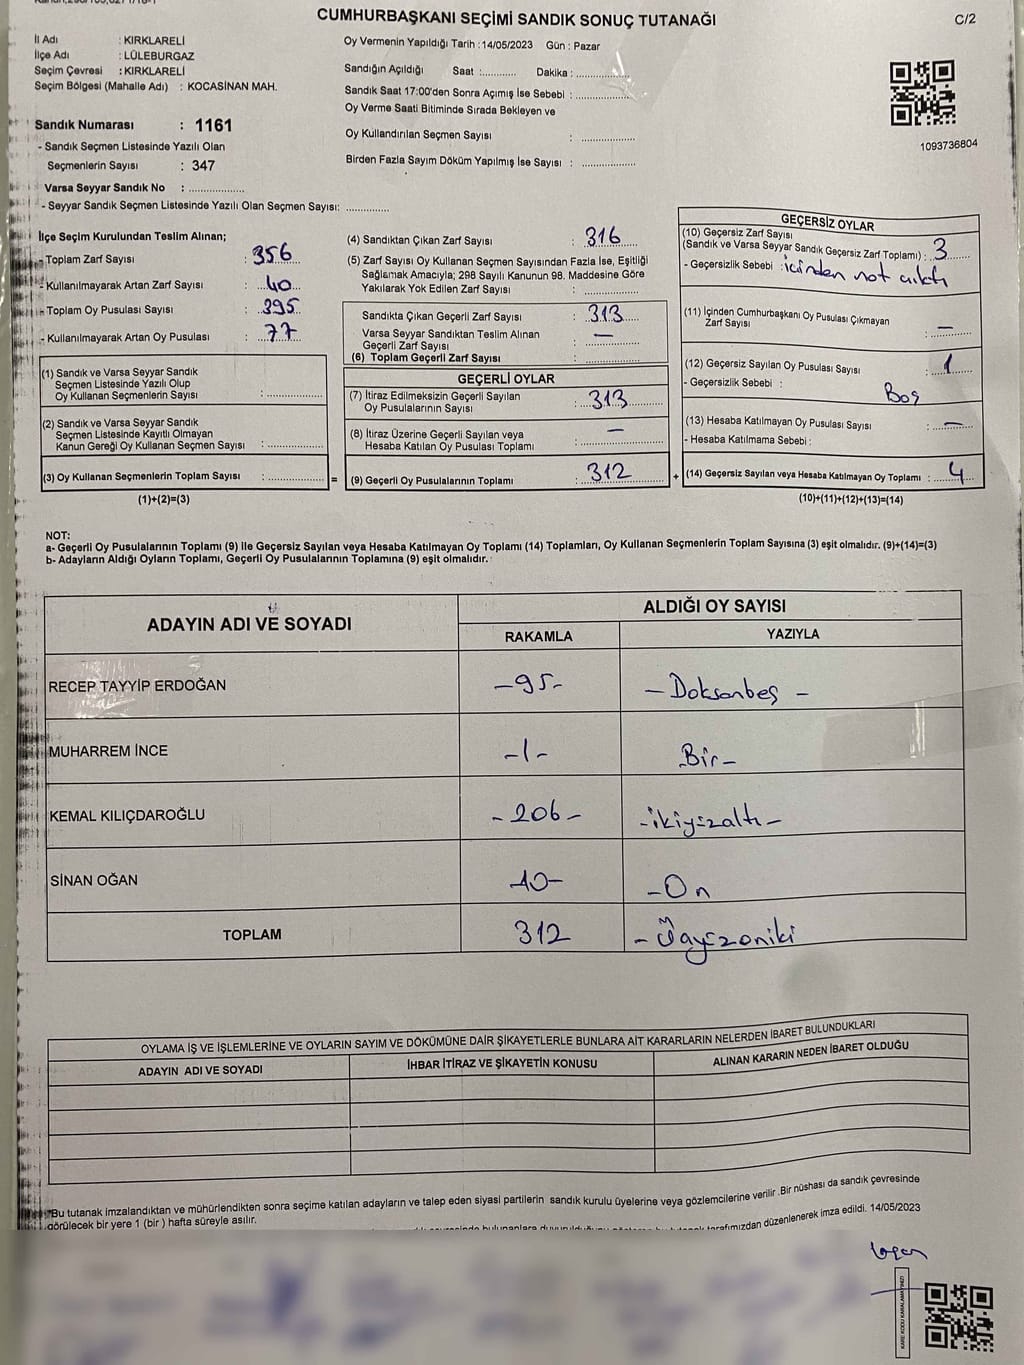 CUMHURBAŞKANI SEÇİMİ SANDIK SONUÇ TUTANAĞI
C/2
İl Adı : KIRKLARELİ
İlçe Adı : LÜLEBURGAZ
Seçim Çevresi : KIRKLARELİ
Seçim Bölgesi (Mahalle Adı) : KOCASİNAN MAH.
Sandık Numarası : 1161
- Sandık Seçmen Listesinde Yazılı Olan
Seçmenlerin Sayısı : 347
Varsa Seyyar Sandık No : ..................
- Seyyar Sandık Seçmen Listesinde Yazılı Olan Seçmen Sayısı: ..............
Oy Vermenin Yapıldığı Tarih : 14/05/2023 Gün : Pazar
Sandığın Açıldığı Saat :............ Dakika : ..................
Sandık Saat 17:00'den Sonra Açımış İse Sebebi : ..................
Oy Verme Saati Bitiminde Sırada Bekleyen ve
Oy Kullandırılan Seçmen Sayısı : ..................
Birden Fazla Sayım Döküm Yapılmış İse Sayısı : ..................
1093736804
İlçe Seçim Kurulundan Teslim Alınan;
- Toplam Zarf Sayısı : 356
- Kullanılmayarak Artan Zarf Sayısı : 40
- Toplam Oy Pusulası Sayısı : 395
- Kullanılmayarak Artan Oy Pusulası : 77
(1) Sandık ve Varsa Seyyar Sandık
Seçmen Listesinde Yazılı Olup
Oy Kullanan Seçmenlerin Sayısı : ..................
(2) Sandık ve Varsa Seyyar Sandık
Seçmen Listesinde Kayıtlı Olmayan
Kanun Gereği Oy Kullanan Seçmen Sayısı : ..................
(3) Oy Kullanan Seçmenlerin Toplam Sayısı : ..................
(1)+(2)=(3)
=
(4) Sandıktan Çıkan Zarf Sayısı : 316
(5) Zarf Sayısı Oy Kullanan Seçmen Sayısından Fazla İse, Eşitliği
Sağlamak Amacıyla; 298 Sayılı Kanunun 98. Maddesine Göre
Yakılarak Yok Edilen Zarf Sayısı : ..................
Sandıkta Çıkan Geçerli Zarf Sayısı : 313
Varsa Seyyar Sandıktan Teslim Alınan
Geçerli Zarf Sayısı : —
(6) Toplam Geçerli Zarf Sayısı : ..................
GEÇERLİ OYLAR
(7) İtiraz Edilmeksizin Geçerli Sayılan
Oy Pusulalarının Sayısı : 313
(8) İtiraz Üzerine Geçerli Sayılan veya
Hesaba Katılan Oy Pusulası Toplamı : —
(9) Geçerli Oy Pusulalarının Toplamı : 312
+
GEÇERSİZ OYLAR
(10) Geçersiz Zarf Sayısı
(Sandık ve Varsa Seyyar Sandık Geçersiz Zarf Toplamı) : 3
- Geçersizlik Sebebi : içinden not çıktı
(11) İçinden Cumhurbaşkanı Oy Pusulası Çıkmayan
Zarf Sayısı : —
(12) Geçersiz Sayılan Oy Pusulası Sayısı : 1
- Geçersizlik Sebebi : Boş
(13) Hesaba Katılmayan Oy Pusulası Sayısı : —
- Hesaba Katılmama Sebebi :
(14) Geçersiz Sayılan veya Hesaba Katılmayan Oy Toplamı : 4
(10)+(11)+(12)+(13)=(14)
NOT:
a- Geçerli Oy Pusulalarının Toplamı (9) ile Geçersiz Sayılan veya Hesaba Katılmayan Oy Toplamı (14) Toplamları, Oy Kullanan Seçmenlerin Toplam Sayısına (3) eşit olmalıdır. (9)+(14)=(3)
b- Adayların Aldığı Oyların Toplamı, Geçerli Oy Pusulalarının Toplamına (9) eşit olmalıdır.
ADAYIN ADI VE SOYADI
ALDIĞI OY SAYISI
RAKAMLA YAZIYLA
RECEP TAYYİP ERDOĞAN -95- - Doksanbeş -
MUHARREM İNCE -1- Bir-
KEMAL KILIÇDAROĞLU -206- -ikiyüzaltı-
SİNAN OĞAN -10- -On
TOPLAM 312 - Üçyüzoniki
OYLAMA İŞ VE İŞLEMLERİNE VE OYLARIN SAYIM VE DÖKÜMÜNE DAİR ŞİKAYETLERLE BUNLARA AİT KARARLARIN NELERDEN İBARET BULUNDUKLARI
ADAYIN ADI VE SOYADI İHBAR İTİRAZ VE ŞİKAYETİN KONUSU ALINAN KARARIN NEDEN İBARET OLDUĞU
*Bu tutanak imzalandıktan ve mühürlendikten sonra seçime katılan adayların ve talep eden siyasi partilerin sandık kurulu üyelerine veya gözlemcilerine verilir. Bir nüshası da sandık çevresinde
görülecek bir yere 1 (bir) hafta süreyle asılır.
tarafımızdan düzenlenerek imza edildi. 14/05/2023
KARE KODU KARALAMAYINIZ!